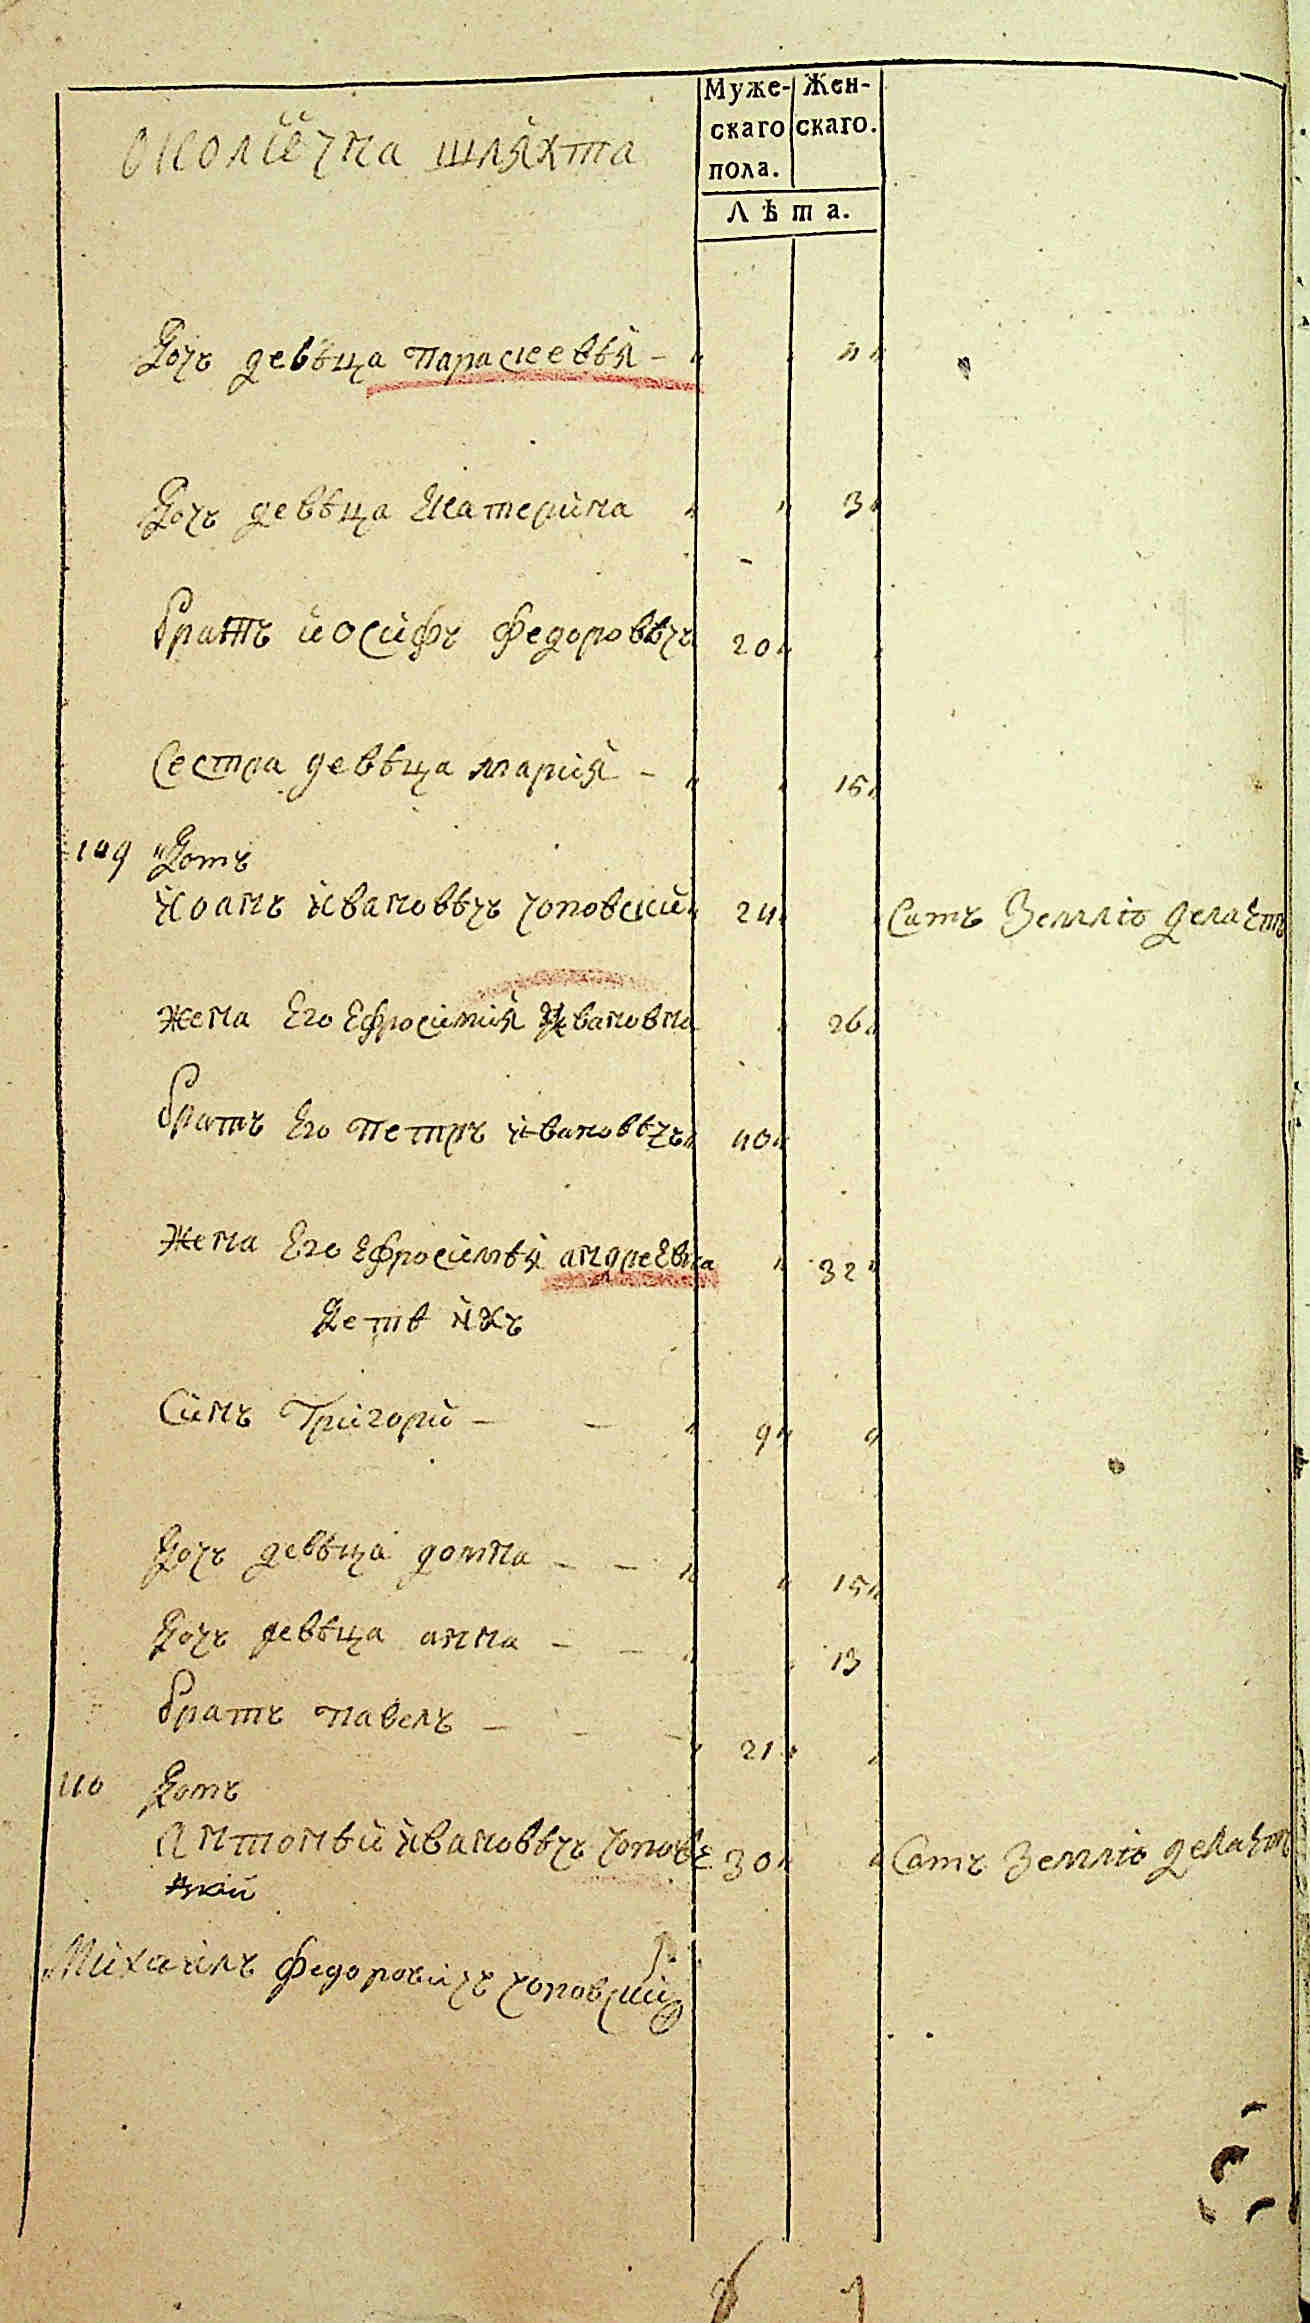 Муже- Жен-
скаго скаго.
пола.
Лѣта.
околѣчна шляхта
Дочъ девѣца параскеввѣя - 4
Дочъ девѣца Екатерина 3
братъ иосифъ федоровѣчъ 20
Сестра девѣца мария - 15
109 Домъ
Иоанъ ивановѣчъ чоповский 24 Самъ Землю делаетъ
жена Его Ефросиния ивановна 26
братъ Его петръ ивановѣчъ 40
Жена Его Ефросинѣя андреевна 32
Детѣ ихъ
Синъ Григори - - 9
Дочъ девѣца домна - - 15
Дочъ девѣца анна - - 13
братъ павелъ - - - 21
110 Домъ
Антонѣй ивановѣчъ чоповс 30 Самъ Землю делаетъ
кий
Михаилъ федоровичъ чоповский